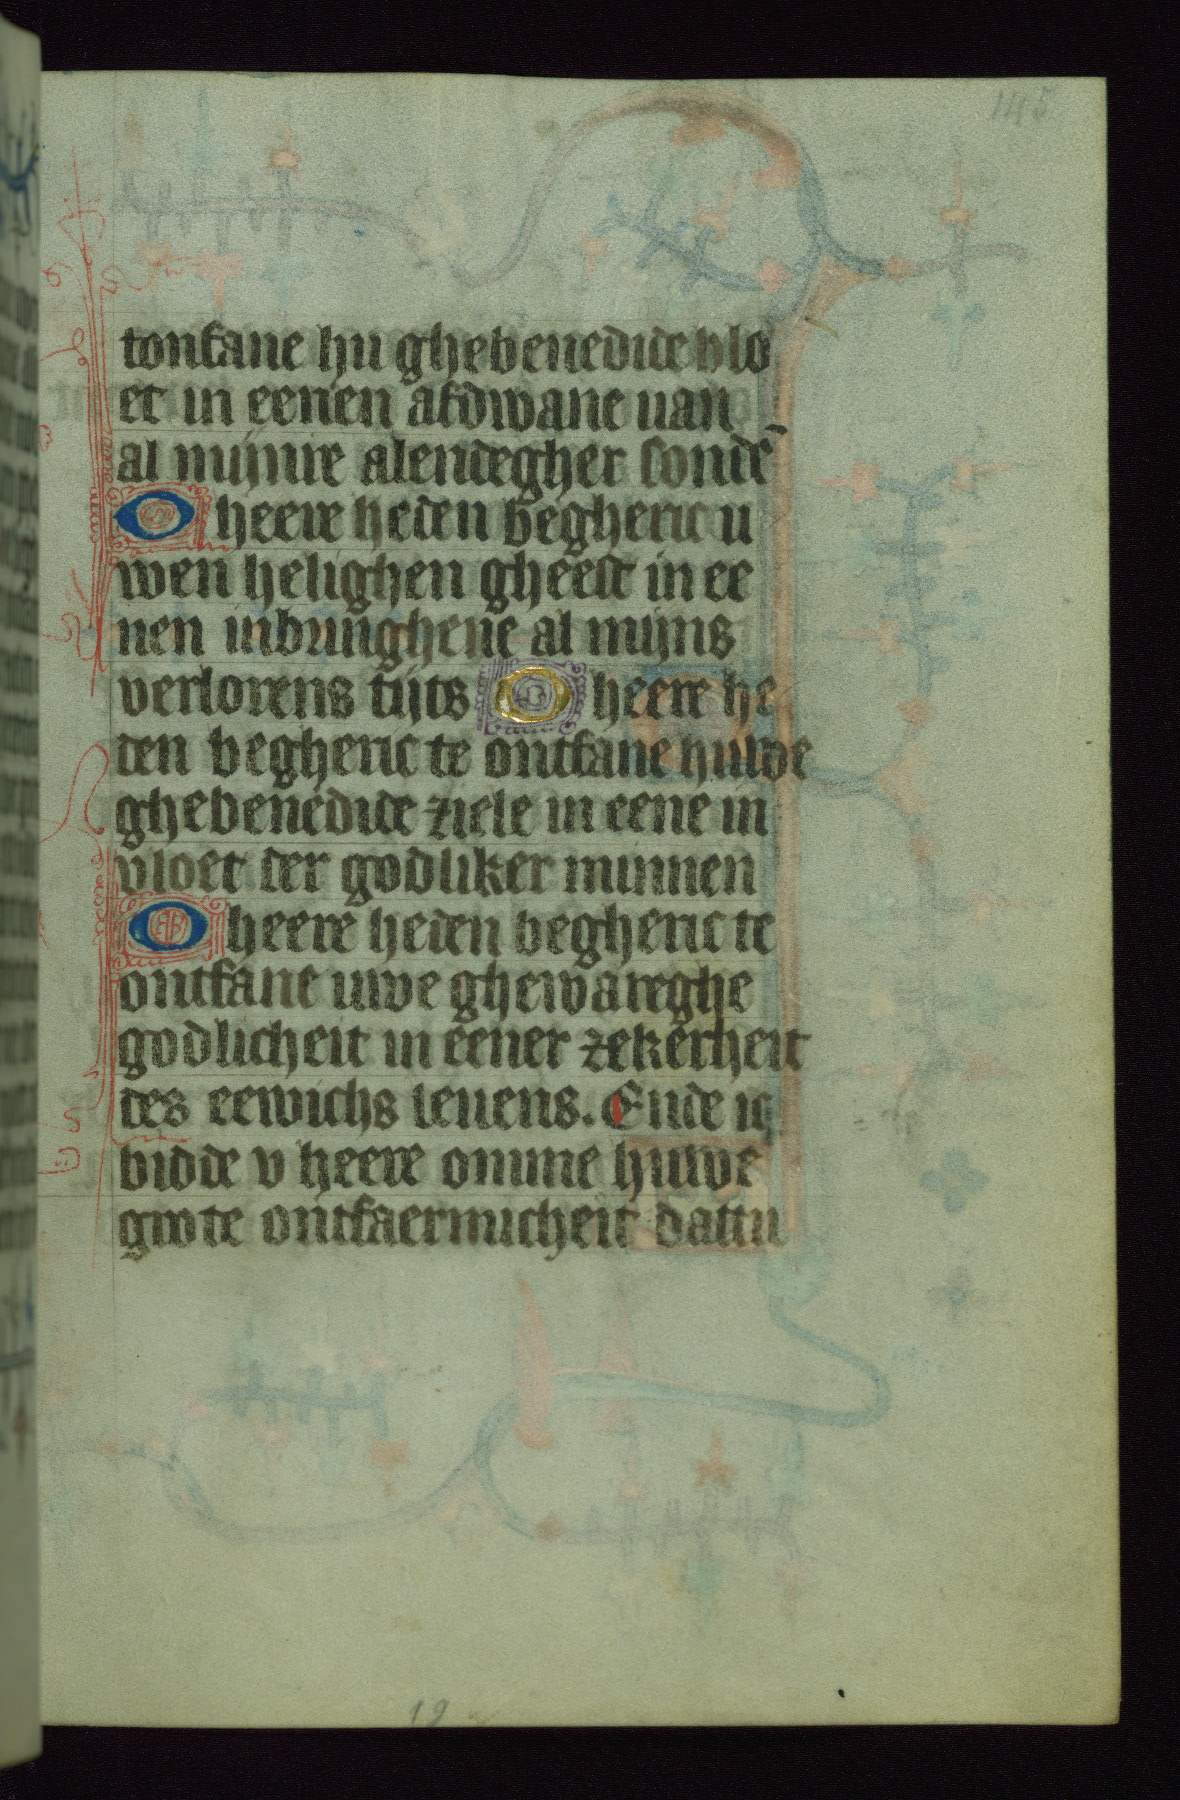 145
tonfane hu ghebenedide blo
et in eenen afdwane uan
al mijnre alendegher sondē
O heere heden begheric u
wen helighen gheest in ee
nen inbringhene al mijns
verlorens tijts O heere he
den begheric te ontfane hulde
ghebenedide ziele in eene in
vloet der godliker minnen
O heere heden begheric te
ontfane uwe ghewareghe
godlicheit in eener zekerheit
des eewichs leuens. Ende ic
bidde v heere omme huwe
grote ontfaermicheit dattu